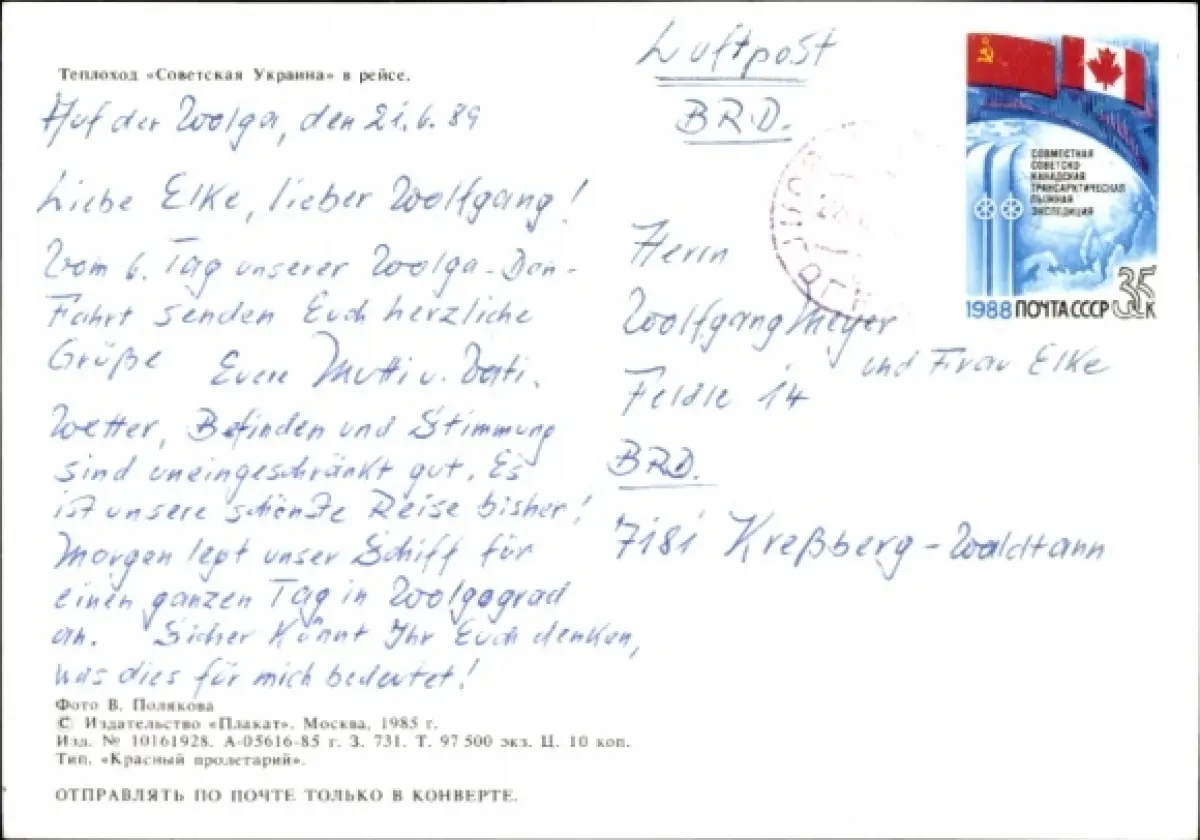 Теплоход «Советская Украина» в рейсе.
Auf der Wolga, den 21.6.89
Liebe Elke, lieber Wolfgang!
Vom 6. Tag unserer Wolga-Don-
Fahrt senden Euch herzliche
Grüße Euere Mutti u. Vati.
Wetter, Befinden und Stimmung
sind uneingeschränkt gut. Es
ist unsere schönste Reise bisher!
Morgen legt unser Schiff für
einen ganzen Tag in Wolgograd
an. Sicher könnt Ihr Euch denken,
was dies für mich bedeutet!
Фото В. Полякова
© Издательство «Плакат». Москва, 1985 г.
Изд. № 10161928. А-05616-85 г. З. 731. Т. 97 500 экз. Ц. 10 коп.
Тип. «Красный пролетарий».
ОТПРАВЛЯТЬ ПО ПОЧТЕ ТОЛЬКО В КОНВЕРТЕ.
Luftpost
BRD.
Herrn
Wolfgang Meyer
und Frau Elke
Feldle 14
BRD.
7181 Kreßberg-Waldtann
СОВМЕСТНАЯ
СОВЕТСКО-
КАНАДСКАЯ
ТРАНСАРКТИЧЕСКАЯ
ЛЫЖНАЯ
ЭКСПЕДИЦИЯ
35 К
1988 ПОЧТА СССР